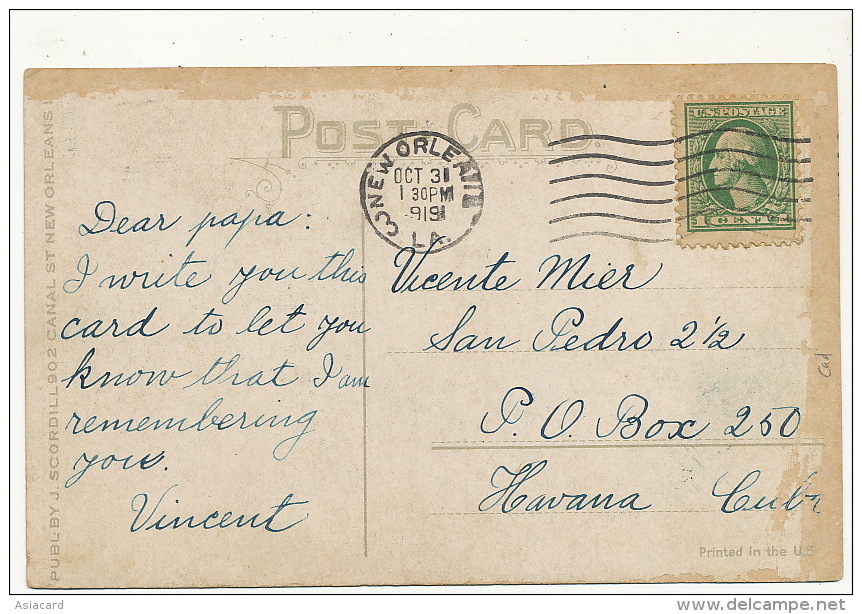 POST CARD
NEW ORLEA
OCT 31
1 30PM
LA.
U.S. POSTAGE
1 CENT
Dear papa:
I write you this
card to let you
know that I am
remembering
you.
Vincent
Vicente Mier
San Pedro 2 1/2
P. O. Box 250
Havana Cuba
Printed in the U.S
PUBL. BY J. SCORDILL 902 CANAL ST NEW ORLEANS
Asiacard
delcampe.net